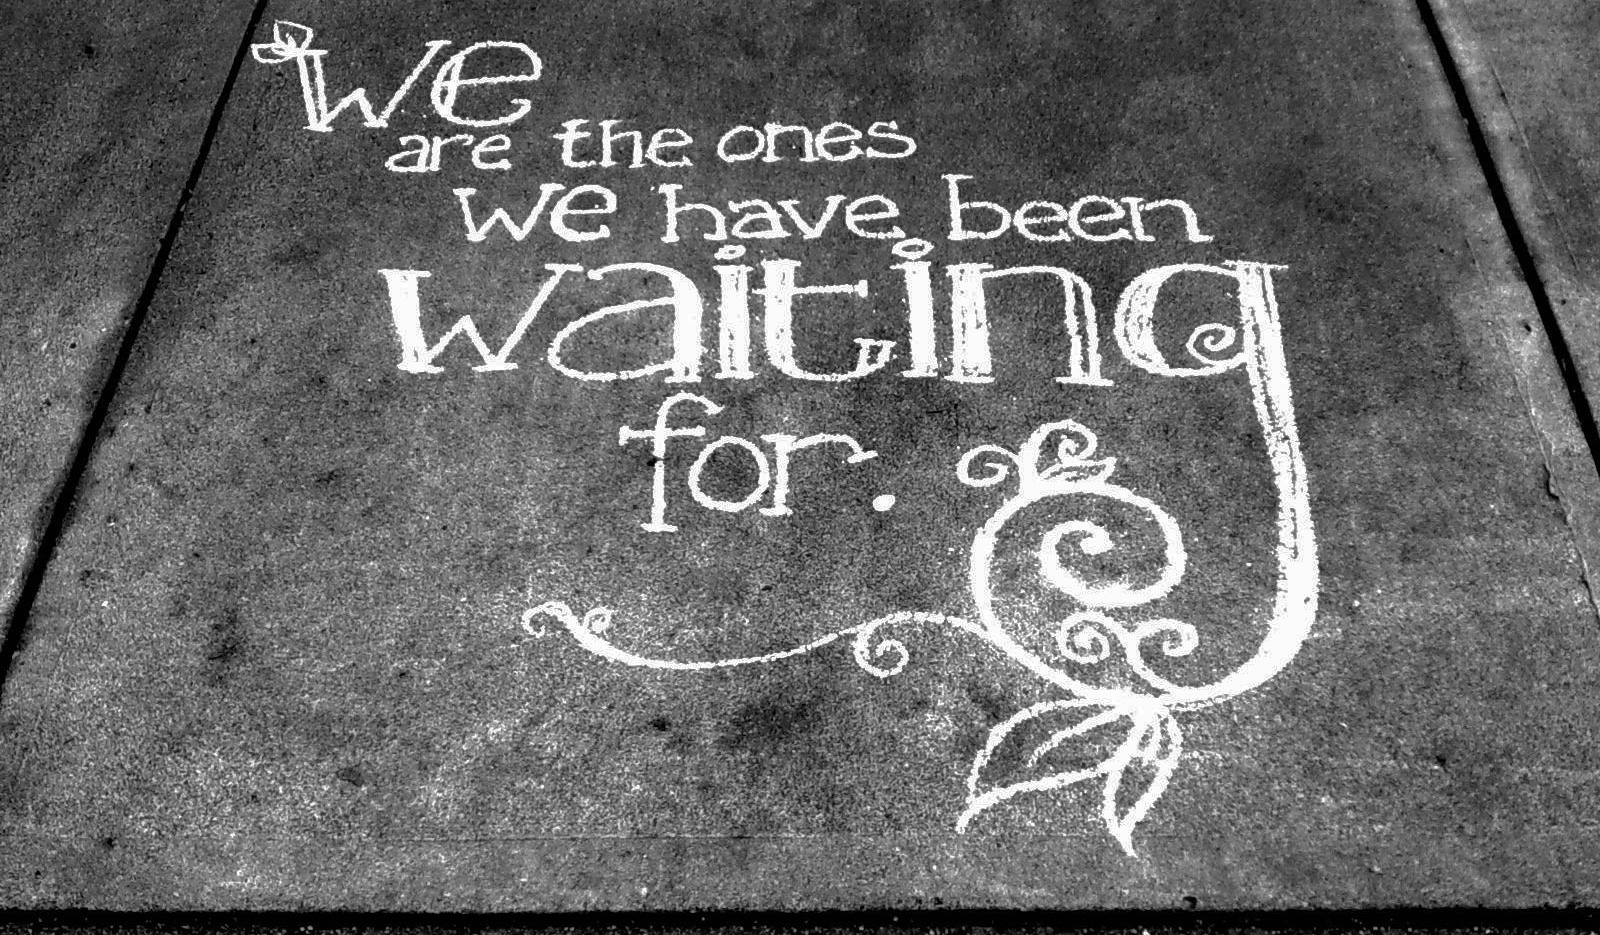 We
are the ones
we have been
waiting
for.